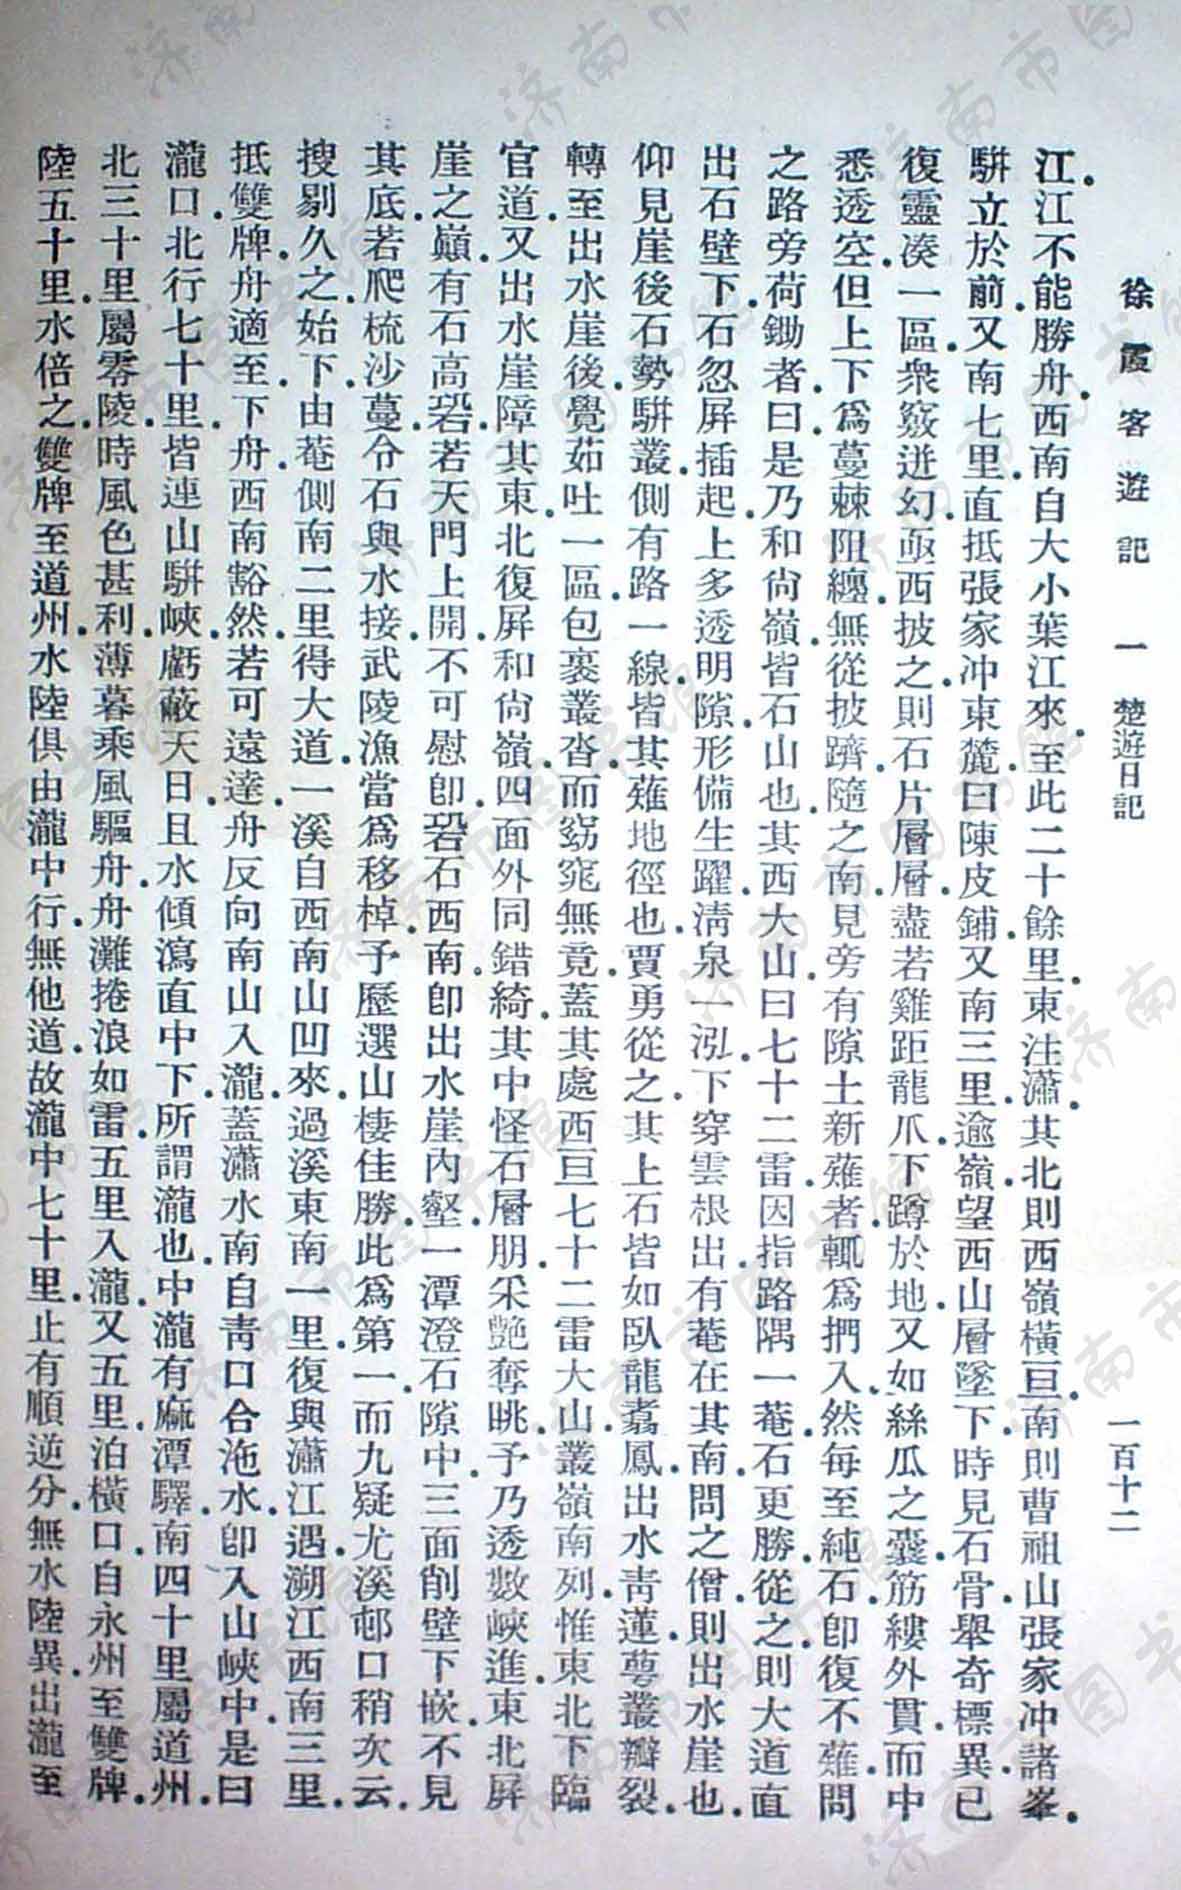 徐霞客遊記　一　楚遊日記　一百十二
江．江不能勝舟．西南自大小葉江來．至此二十餘里．東注瀟．其北則西嶺橫亘．南則曹祖山張家冲諸峯．
騈立於前．又南七里．直抵張家冲東麓．曰陳皮鋪．又南三里．逾嶺望西山層墜下．時見石骨．舉奇標異．已
復靈湊一區．衆竅迸幻．亟西披之．則石片層層．盡若雞距龍爪．下蹲於地．又如絲瓜之囊．筋縷外貫．而中
悉透空．但上下爲蔓棘阻纏．無從披躋．隨之南．見旁有隙土新薙者．輒爲捫入．然每至純石．卽復不薙．問
之路旁荷鋤者．曰是乃和尙嶺．皆石山也．其西大山．曰七十二雷．因指路隅一菴．石更勝．從之．則大道直
出石壁下．石忽屏插起．上多透明隙．形備生躍．淸泉一泓．下穿雲根出．有菴在其南．問之僧．則出水崖也．
仰見崖後石勢騈叢．側有路一線．皆其薙地徑也．賈勇從之．其上石皆如臥龍翥鳳．出水靑蓮．萼叢瓣裂．
轉至出水崖後．覺茹吐一區．包裹叢沓．而窈窕無竟．蓋其處西亘七十二雷大山．叢嶺南列．惟東北下臨
官道．又出水崖障其東．北復屏和尙嶺．四面外同錯綺．其中怪石層朋．采艶奪眺．予乃透數峽進．東北屏
崖之巓．有石高穹．若天門上開．不可慰卽．穹石西南．卽出水崖內壑．一潭澄石隙中．三面削壁下嵌．不見
其底．若爬梳沙蔓．令石與水接．武陵漁當爲移棹．予歷選山棲佳勝．此爲第一．而九疑尤溪邨口稍次云．
搜剔久之．始下．由菴側南二里．得大道．一溪自西南山凹來．過溪東南一里．復與瀟江遇．溯江西南三里．
抵雙牌．舟適至．下舟．西南豁然．若可遠達．舟反向南山入瀧．蓋瀟水南自靑口合沲水．卽入山峽中．是曰
瀧口．北行七十里．皆連山騈峽．虧蔽天日．且水傾瀉直中下．所謂瀧也．中瀧有麻潭驛．南四十里屬道州．
北三十里屬零陵．時風色甚利．薄暮乘風驅舟．舟灘捲浪如雷．五里入瀧．又五里泊橫口．自永州至雙牌．
陸五十里．水倍之．雙牌至道州．水陸俱由瀧中行．無他道．故瀧中七十里．止有順逆分．無水陸異．出瀧至